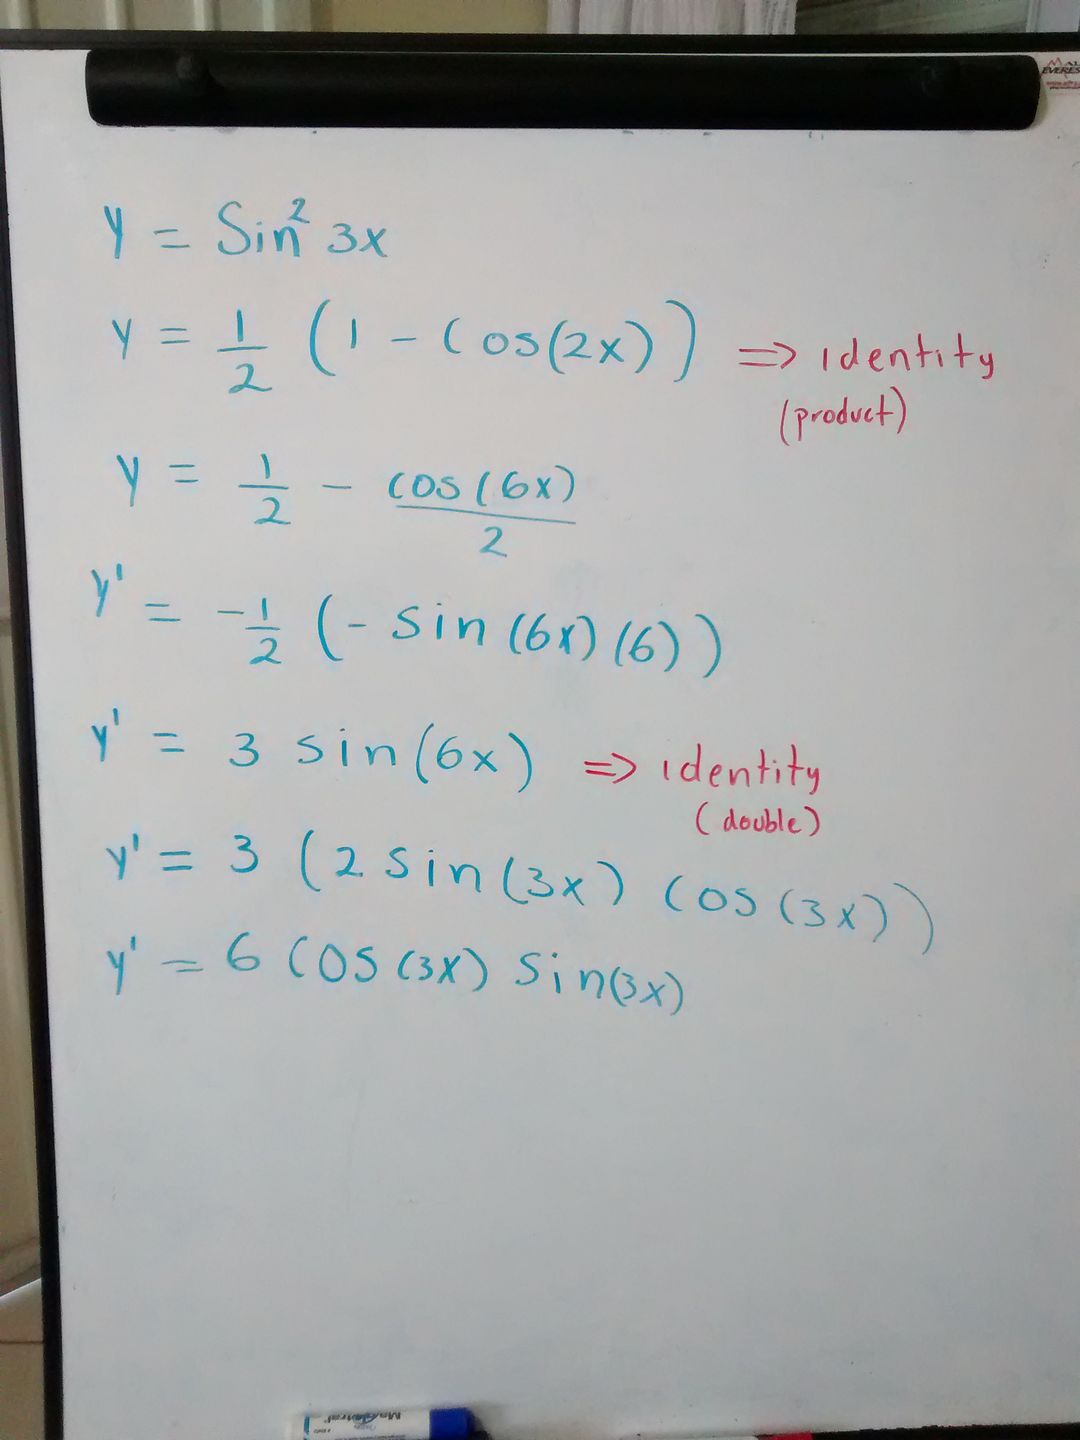 y = Sin² 3x
y = 1/2 (1 - Cos(2x)) => identity
(product)
y = 1/2 - cos(6x)/2
y' = -1/2 (- sin (6x) (6))
y' = 3 sin(6x) => identity
(double)
y' = 3 (2 sin(3x) cos(3x))
y' = 6 cos(3x) sin(3x)